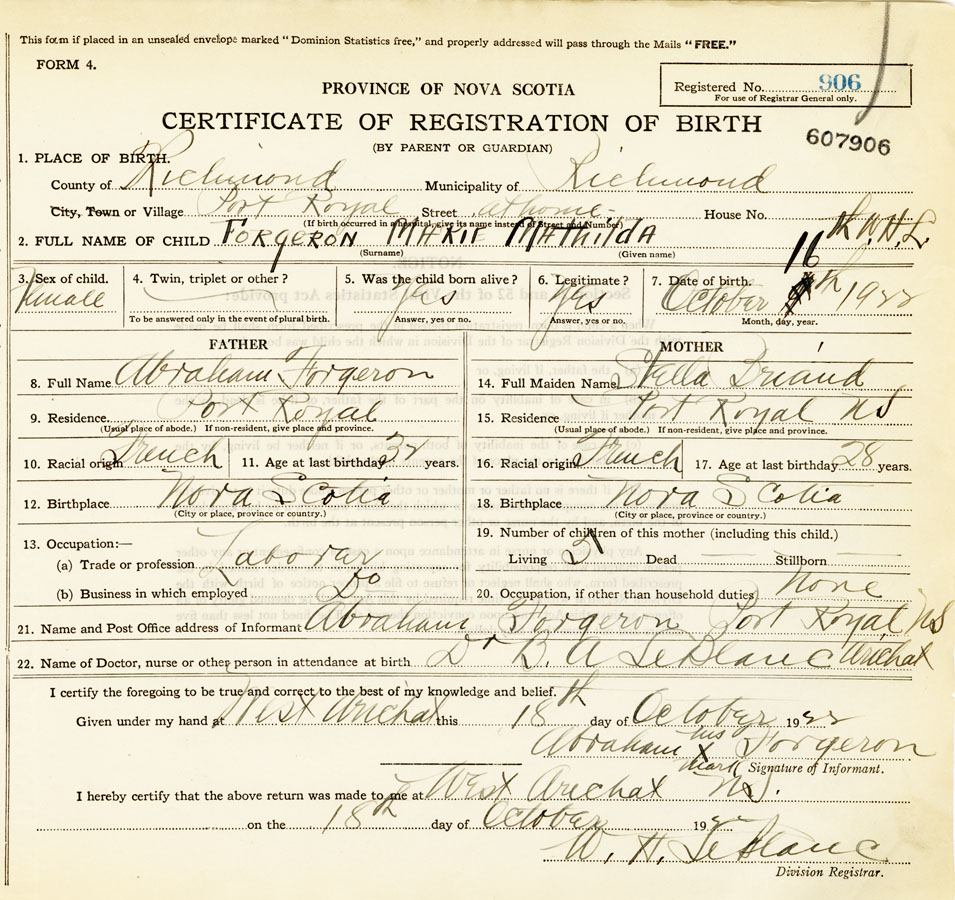 This form if placed in an unsealed envelope marked "Dominion Statistics free," and properly addressed will pass through the Mails "FREE."
FORM 4.
Registered No. 906
For use of Registrar General only.
PROVINCE OF NOVA SCOTIA
CERTIFICATE OF REGISTRATION OF BIRTH
607906
(BY PARENT OR GUARDIAN)
1. PLACE OF BIRTH.
County of Richmond Municipality of Richmond
City, Town or Village Port Royal Street at home House No.
(If birth occurred in a hospital, give its name instead of Street and Number)
2. FULL NAME OF CHILD FORGERON MARIE MATHILDA
(Surname) (Given name)
16th W.H.L.
3. Sex of child. 4. Twin, triplet or other? 5. Was the child born alive? 6. Legitimate? 7. Date of birth.
Female Yes Yes October th 1922
To be answered only in the event of plural birth. Answer, yes or no. Answer, yes or no. Month, day, year.
FATHER MOTHER
8. Full Name Abraham Forgeron 14. Full Maiden Name Stella Briand
9. Residence Port Royal 15. Residence Port Royal NS
(Usual place of abode.) If non-resident, give place and province. (Usual place of abode.) If non-resident, give place and province.
10. Racial origin French 11. Age at last birthday 32 years. 16. Racial origin French 17. Age at last birthday 28 years.
12. Birthplace Nova Scotia 18. Birthplace Nova Scotia
(City or place, province or country.) (City or place, province or country.)
13. Occupation:— 19. Number of children of this mother (including this child.)
(a) Trade or profession Laborar Living Dead Stillborn
(b) Business in which employed Do 20. Occupation, if other than household duties None
21. Name and Post Office address of Informant Abraham Forgeron Port Royal NS
22. Name of Doctor, nurse or other person in attendance at birth Dr B. A LeBlanc Arichat
I certify the foregoing to be true and correct to the best of my knowledge and belief.
Given under my hand at West Arichat this 18th day of October 1922
Abraham his X mark Forgeron
Signature of Informant.
I hereby certify that the above return was made to me at West Arichat NS.
on the 18th day of October 192
W. H. LeBlanc
Division Registrar.